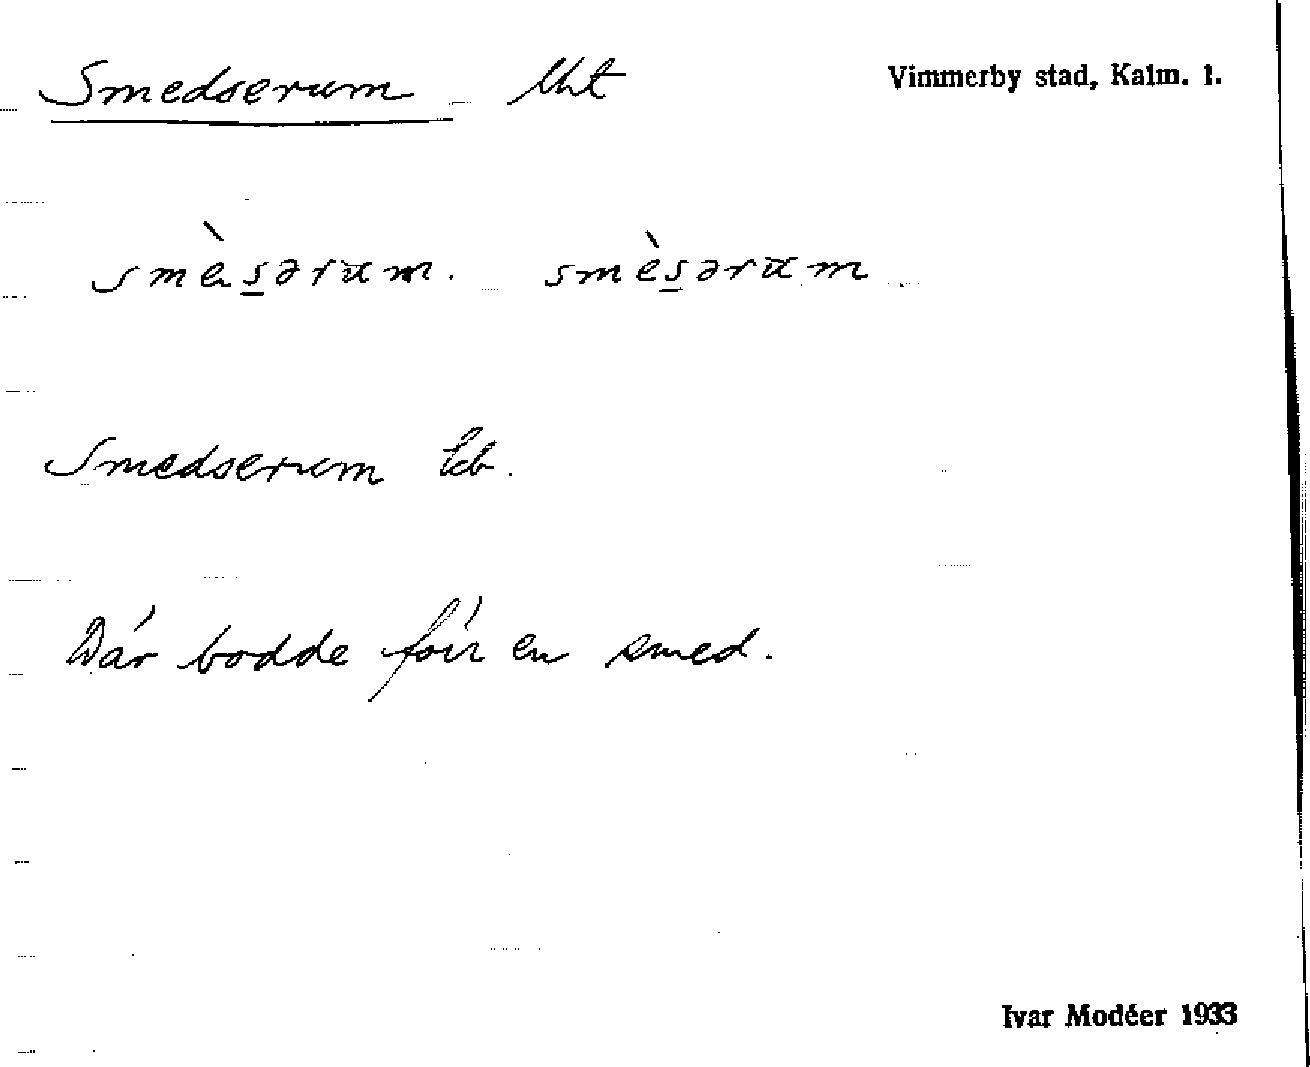 Smedserum lht Vimmerby stad, Kalm. l.
smès̲ərum. smès̲ərum
Smedserum Eb.
Där bodde förr en smed.
Ivar Modéer 1933